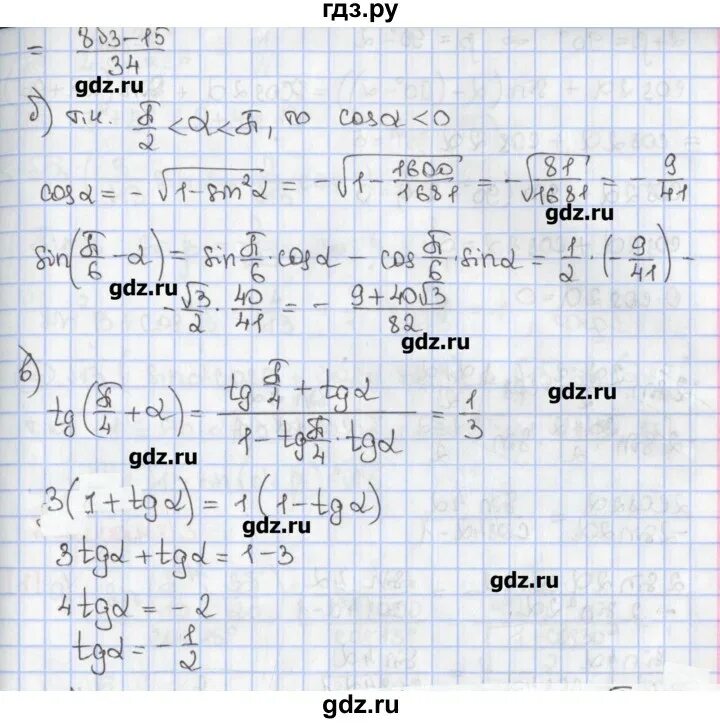 гдз.ру
= 8√3-15/34
gdz.ru
б) т.к. π/2 < α < π, то cosα < 0
cosα = -√(1-sin²α) = -√(1-1600/1681) = -√(81/1681) = -9/41
gdz.ru
sin(π/6 - α) = sin π/6 · cosα - cos π/6 · sinα = 1/2 · (-9/41) -
gdz.ru
- √3/2 · 40/41 = - 9+40√3/82
gdz.ru
в)
tg(π/4 + α) = tg π/4 + tgα / 1 - tg π/4 · tgα = 1/3
gdz.ru
gdz.ru
3(1 + tgα) = 1(1 - tgα)
gdz.ru
3tgα + tgα = 1 - 3
gdz.ru
4tgα = -2
tgα = -1/2
gdz.ru